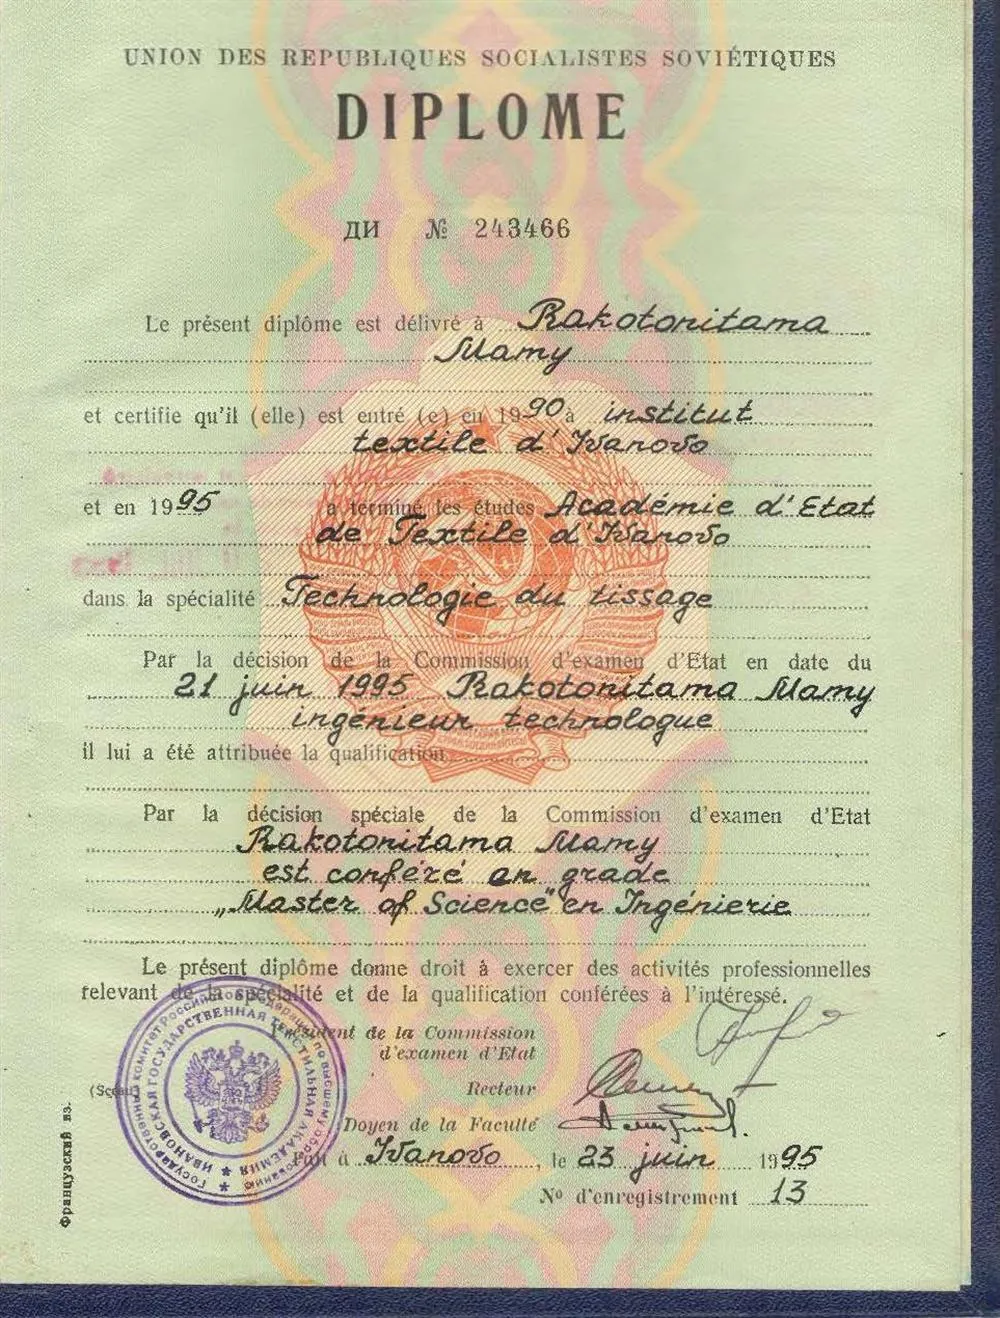 UNION DES REPUBLIQUES SOCIALISTES SOVIÉTIQUES
DIPLOME
ДИ № 243466
Le présent diplôme est délivré à Rakotonitama
Mamy
et certifie qu'il (elle) est entré (e) en 1990 à institut
textile d'Ivanovo
et en 1995 a terminé les études Académie d'Etat
de Textile d'Ivanovo
dans la spécialité Technologie du tissage
Par la décision de la Commission d'examen d'Etat en date du
21 juin 1995 Rakotonitama Mamy
ingénieur technologue
il lui a été attribuée la qualification
Par la décision spéciale de la Commission d'examen d'Etat
Rakotonitama Mamy
est conféré an grade
„Master of Science" en Ingénierie
Le présent diplôme donne droit à exercer des activités professionnelles
relevant de la spécialité et de la qualification conférées à l'intéressé.
Président de la Commission
d'examen d'Etat
(Sceau)
Recteur
Doyen de la Faculté
Fait à Ivanovo, le 23 juin 1995
N° d'enregistrement 13
Государственный комитет Российской Федерации по высшему образованию
ИВАНОВСКАЯ ГОСУДАРСТВЕННАЯ ТЕКСТИЛЬНАЯ АКАДЕМИЯ
Французский яз.